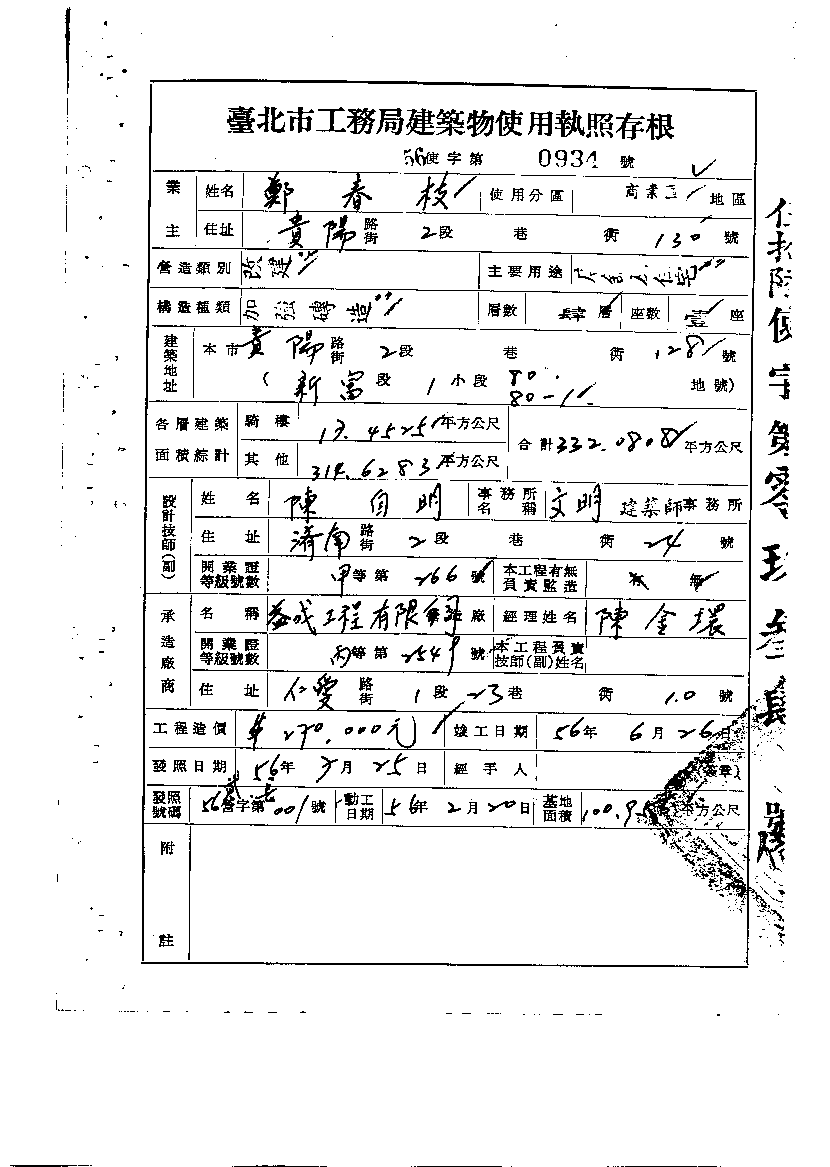 臺北市工務局建築物使用執照存根
56使字第 0934 號
業主 姓名 鄭春枝 使用分區 商業區 地區
住址 貴陽 路街 2段 巷 衖 130 號
營造類別 改建 主要用途
構造種類 加強磚造 層數 層 座數 壹 座
建築地址 本市 貴陽 路街 2段 巷 衖 128 號
(新富段 1 小段 80. 80-1 地號)
各層建築面積綜計 騎樓 17.4525 平方公尺 合計 332.0808 平方公尺
其他 314.6283 平方公尺
設計技師(副) 姓名 陳自明 事務所名稱 文明 建築師事務所
住址 濟南 路街 2段 巷 衖 24 號
開業證等級號數 甲等第 266 號 本工程有無員責監造 有 無
承造廠商 名稱 益成工程有限 廠 經理姓名 陳金環
開業證等級號數 丙等第 號 本工程員責技師(副)姓名
住址 仁愛 路街 1段 23巷 衖 10 號
工程造價 $270,000元 竣工日期 56年 6月 26日
發照日期 56年 7月 25日 經手人 (簽章)
發照號碼 56營字第 001號 動工日期 56年 2月 20日 基地面積 平方公尺
附註